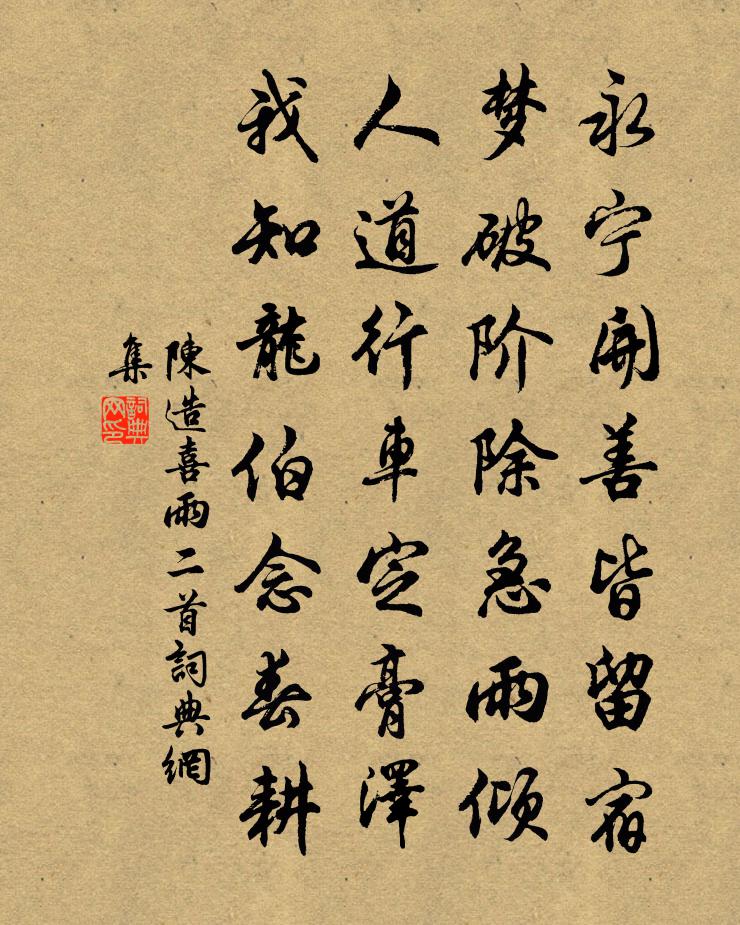 永宁開善皆留宿
梦破阶除急雨倾
人道行車定膏澤
我知龍伯念春耕
陳造喜雨二首詞典網
集
詞典
网印